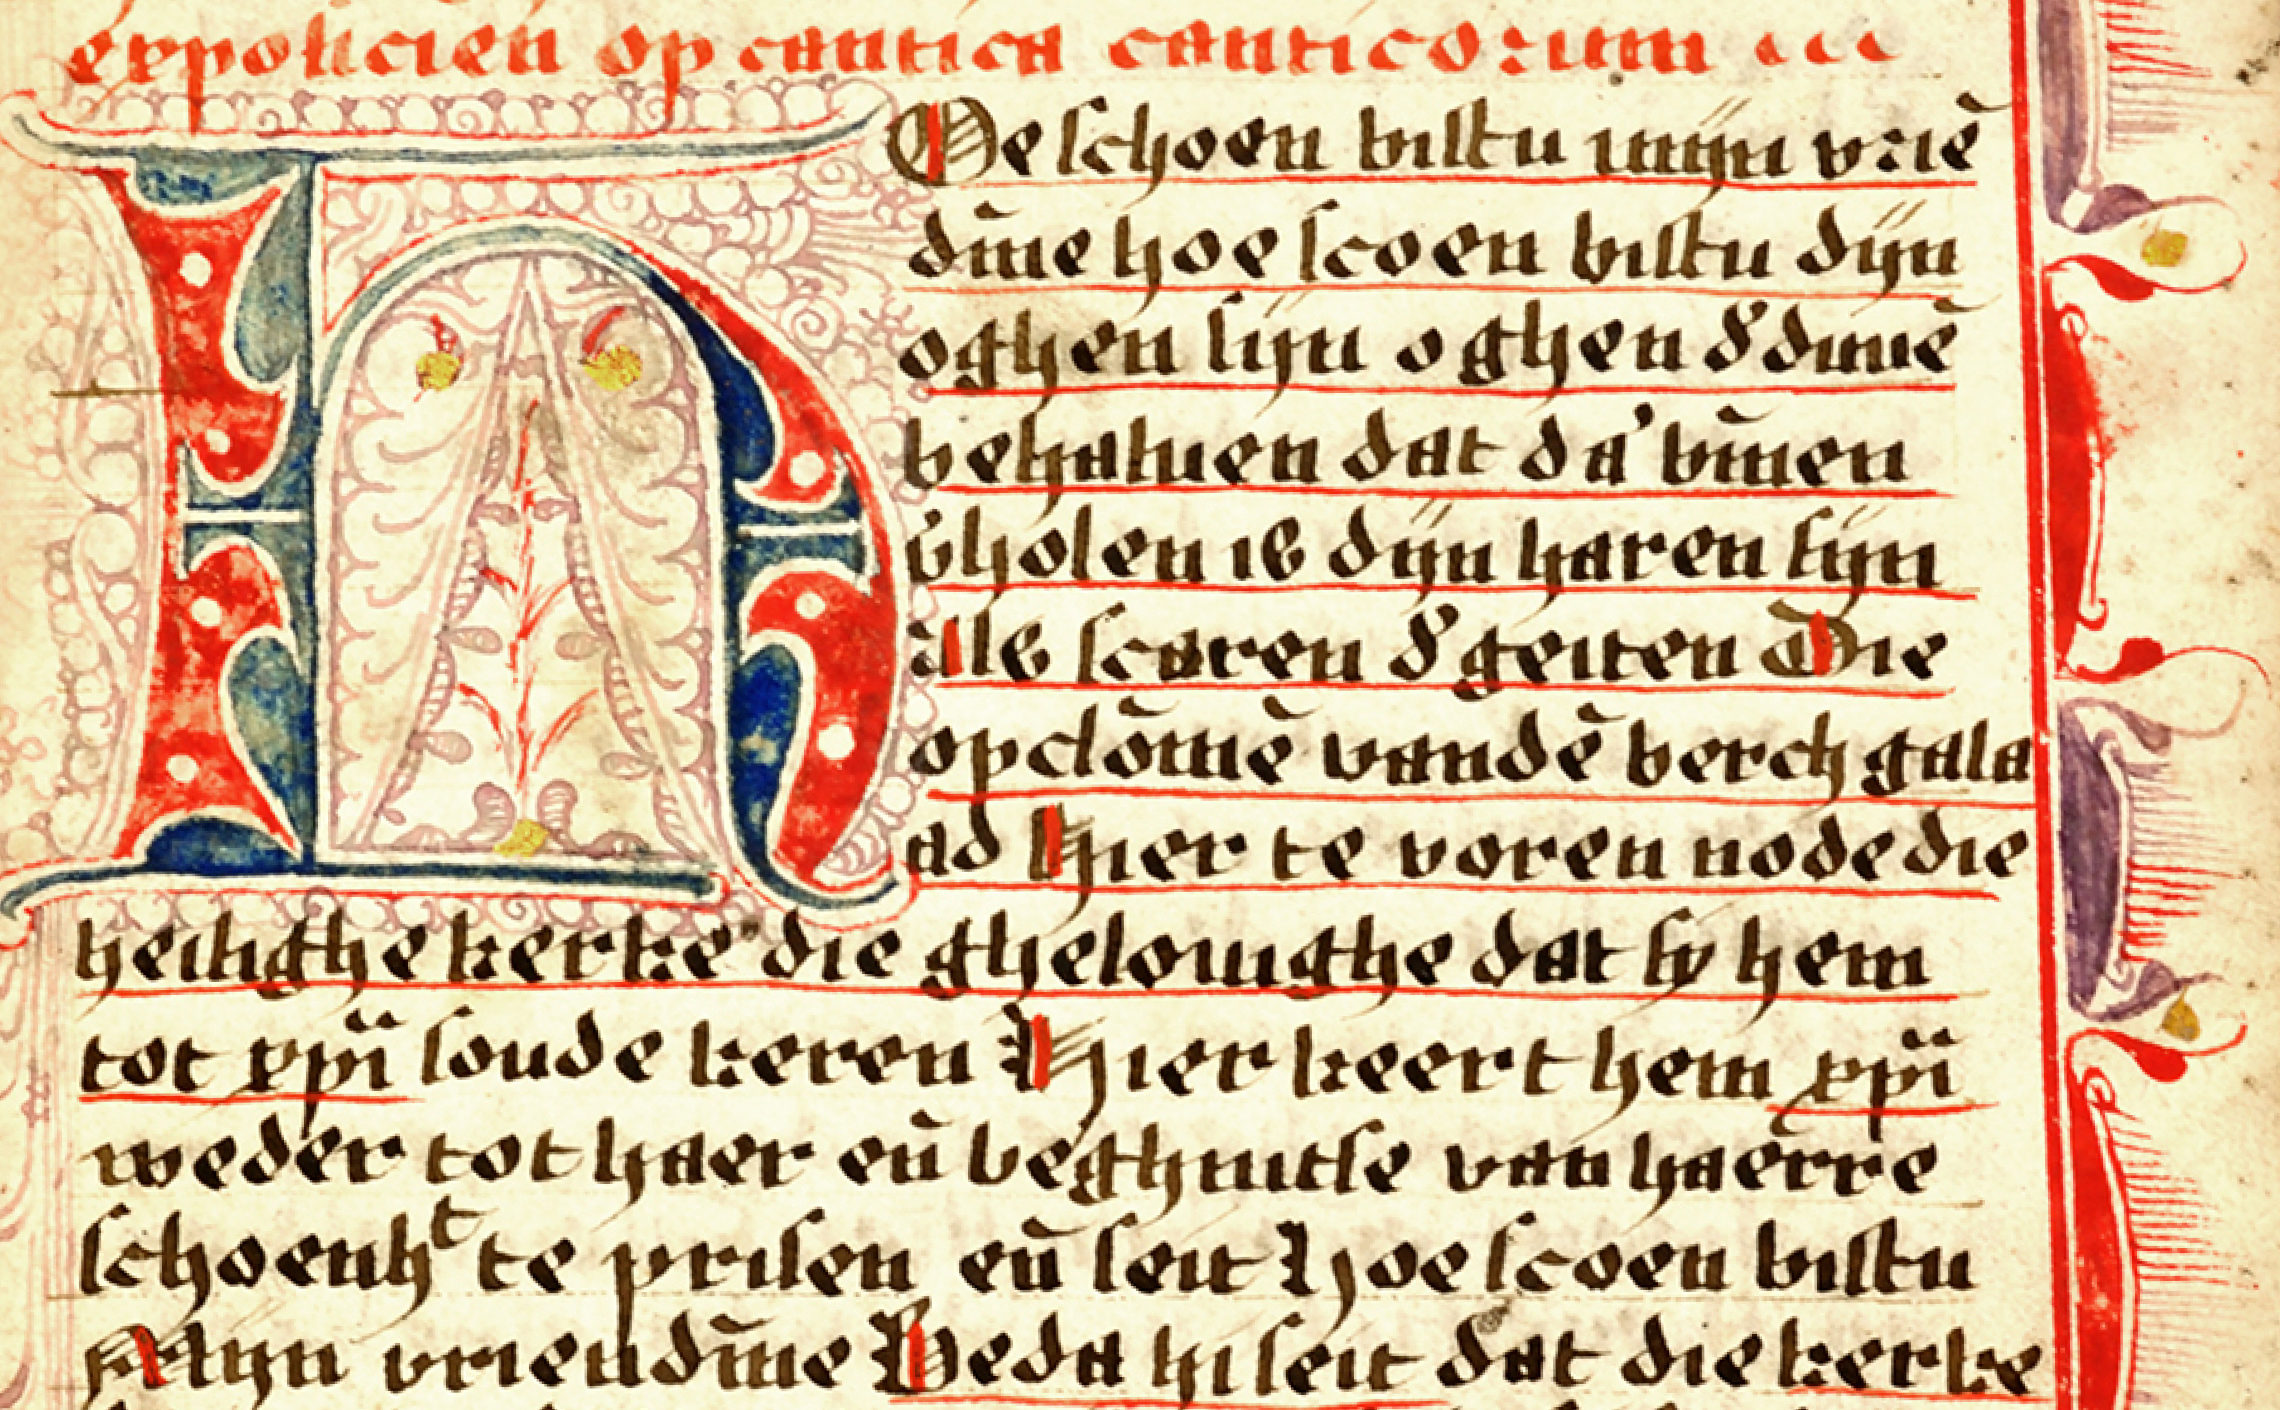 expolicien op cantica canticorum
HOe schoen bistu mijn vriē
dīne hoe scoen bistu dijn
oghen sijn oghen d' duuē
behaluen dat da' bīnen
v'holen is dijn haren sijn
als scaren d' geiten Die
opclōmē vandē berch gala
ad Hier te voren node die
heilighe kerke die ghelouighe dat sy hem
tot xpī soude keren Hier keert hem xpī
weder tot haer eñ beghintse van haerre
schoenhᵗ te prisen eñ seit Hoe scoen bistu
Mijn vriendīne Beda hi seit dat die kerke